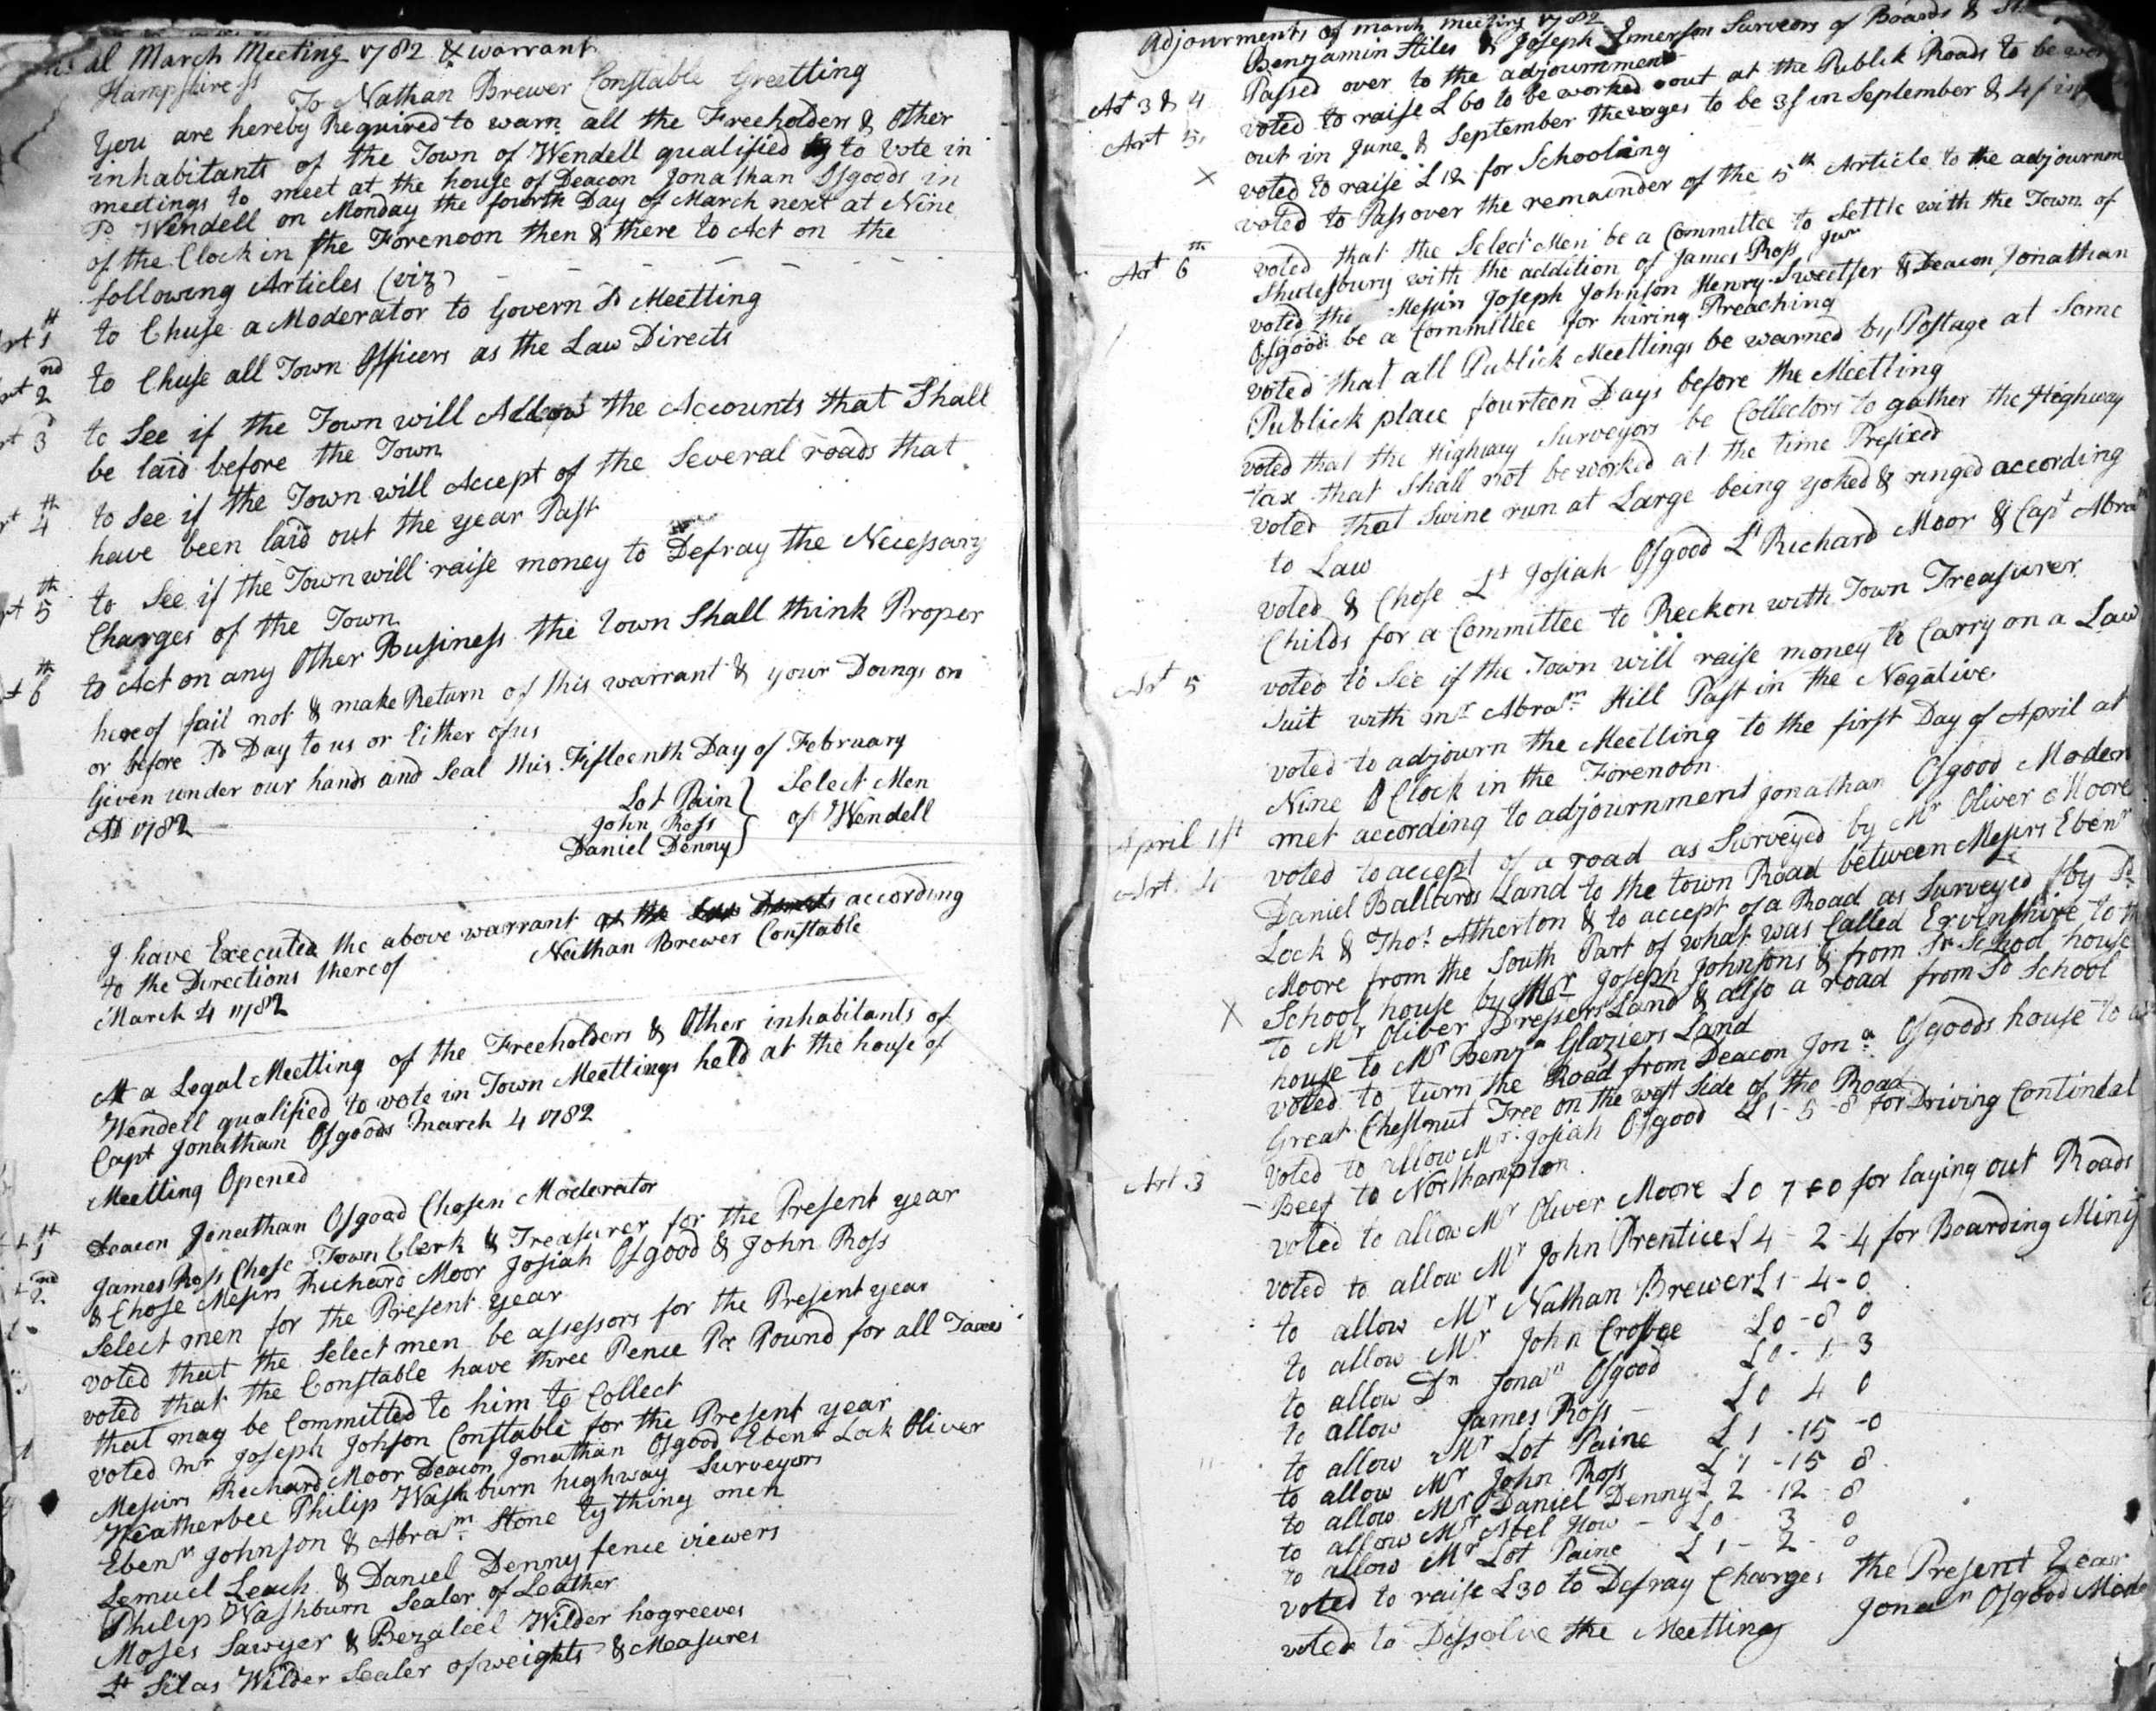 al March Meeting 1782 & warrant
Hampshire ss
To Nathan Brewer Constable Greetting
You are hereby Required to warn all the Freeholders & Other
inhabitants of the Town of Wendell qualified to Vote in
meetings to meet at the house of Deacon Jonathan Osgoods in
Sd Wendell on Monday the fourth Day of March next at Nine
of the Clock in the Forenoon then & there to Act on the
following Articles (viz)
Art 1st to Chuse a Moderator to Govern Sd Meetting
Art 2nd to Chuse all Town Officers as the Law Directs
Art 3d to See if the Town will Allow the Accounts that Shall
be laid before the Town
Art 4th to See if the Town will Accept of the Several roads that
have been laid out the year Past
Art 5th to See if the Town will raise money to Defray the Necessary
Charges of the Town
Art 6th to Act on any Other Business the Town Shall think Proper
hereof fail not & make Return of this warrant & your Doings on
or before Sd Day to us or Either of us
Given under our hands and Seal this Fifteenth Day of February
AD 1782
Lot Pain
John Ross
Daniel Denny
Select Men
of Wendell
I have Executed the above warrant as the Law Directs according
to the Directions thereof
Nathan Brewer Constable
March 4 1782
At a Legal Meetting of the Freeholders & Other inhabitants of
Wendell qualified to vote in Town Meettings held at the house of
Capt Jonathan Osgoods March 4 1782
Meetting Opened
1st Deacon Jonathan Osgood Chosen Moderator
2nd James Ross Chose Town Clerk & Treasurer for the Present year
& Chose Messrs Richard Moor Josiah Osgood & John Ross
Select men for the Present year
voted that the Select men be assessors for the Present year
voted that the Constable have three Pence Pr Pound for all Taxes
that may be Committed to him to Collect
voted Mr Joseph Johson Constable for the Present year
Messrs Richard Moor Deacon Jonathan Osgood Ebenr Lock Oliver
Weatherbee Philip Washburn highway Surveyors
Ebenr Johnson & Abram Stone tything men
Lemuel Leach & Daniel Denny fence viewers
Philip Washburn Sealer of Leather
Moses Sawyer & Bezaleel Wilder hogreeves
Lt Silas Wilder Sealer of weights & Measures
Adjournments of march meeting 1782
Benjamin Stiles & Joseph Emerson Surveors of Boards &
Art 3 & 4 Passed over to the adjournment
Art 5 voted to raise £60 to be worked out at the Publick Roads to be
out in June & September the wages to be 3s in September & 4s in
X voted to raise £12 for Schooling
voted to Pass over the remainder of the 5th Article to the adjournm
Art 6th voted that the Select Men be a Committee to Settle with the Town of
Shutesbury with the addition of James Ross Junr
voted the Messrs Joseph Johnson Henry Sweetser & Deacon Jonathan
Osgood be a Committee for hiring Preaching
voted that all Publick Meettings be warned by Postage at Some
Publick place fourteen Days before the Meetting
voted that the Highway Surveyors be Collectors to gather the Highway
tax that Shall not be worked at the time Prefixed
voted that Swine run at Large being yoked & ringed according
to Law
voted & Chose Lt Josiah Osgood Lt Richard Moor & Capt Abra
Childs for a Committee to Reckon with Town Treasurer
Art 5 voted to See if the Town will raise money to Carry on a Law
Suit with mr Abram Hill Past in the Negative
voted to adjourn the Meetting to the first Day of April at
Nine O Clock in the Forenoon
April 1st met according to adjournment Jonathan Osgood Moder
Art 4 voted to accept of a road as Surveyed by Mr Oliver Moore
Daniel Ballards Land to the town Road between Messrs Ebenr
Lock & Thos Atherton & to accept of a Road as Surveyed by Sd
Moore from the South Part of what was Called Ervinshire to
X School house by Mr Joseph Johnsons & from Sd School house
to Mr Oliver Dressers Land & also a road from Sd School
house to Mr Benja Glaziers Land
voted to turn the Road from Deacon Jona Osgoods house to a
Great Chestnut Tree on the west Side of the Road
Art 3 voted to allow Mr Josiah Osgood £1-5-8 for Driving Contindal
Beef to Northampton
voted to allow Mr Oliver Moore £0 7 0 for laying out Roads
voted to allow Mr John Prentice £4-2-4 for Boarding Minis
to allow Mr Nathan Brewer £1-4-0
to allow Mr John Crosbee £0-8 0
to allow Dn Jonan Osgood £0-1-3
to allow James Ross - £0 4 0
to allow Mr Lot Paine £1-15-0
to allow Mr John Ross £1-15 8
to allow Mr Daniel Denny £2-12-8
to allow Mr Abel How - £0 3 0
to allow Mr Lot Paine £1-2-0
voted to raise £30 to Defray Charges the Present Year
voted to Dissolve the Meetting Jonan Osgood Mode